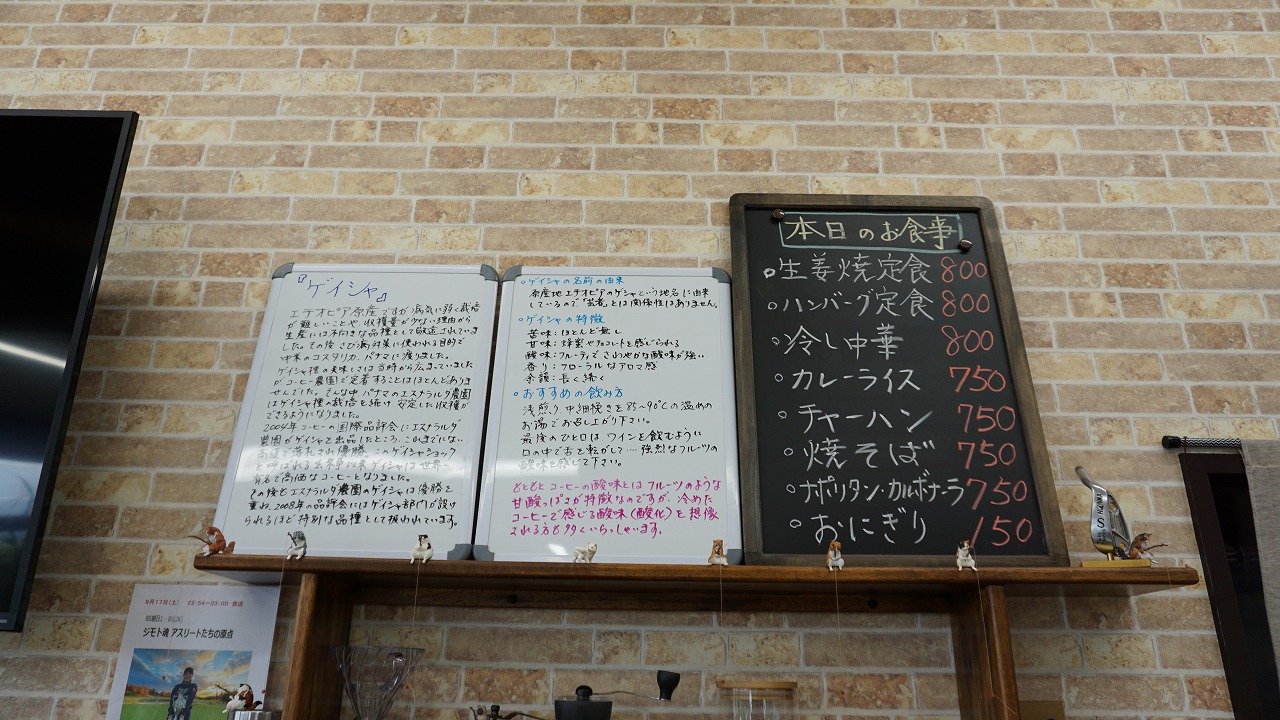 『ゲイシャ』
エチオピア原産ですが病気に弱く栽培
が難しいことや、収穫量が少ない理由から
生産には不向きな品種として敬遠されていま
した。その後、さび病対策に使われる目的で
中米のコスタリカ、パナマに渡りました。
ゲイシャ種の美味しさは当時から広まっていました
がコーヒー農園で定着することはほとんどありま
せんでした。そんな中、パナマのエスメラルダ農園
はゲイシャ種の栽培を続け安定した収穫が
できるようになりました。
2004年コーヒーの国際品評会にエスメラルダ
農園がゲイシャを出品したところ、これまでにない
高値で落札され優勝。このゲイシャショック
と呼ばれる出来事以来ゲイシャは世界一
有名で高価なコーヒーとなりました。
その後もエスメラルダ農園のゲイシャは優勝を
重ね、2008年の品評会にはゲイシャ部門が設け
られるほど特別な品種として扱われています。
○ゲイシャの名前の由来
原産地エチオピアのゲシャという地名に由来
しているので"芸者"とは関係性はありません。
○ゲイシャの特徴
苦味:ほとんど無し
甘味:蜂蜜やチョコレートを感じられる
酸味:フルーティでさわやかな酸味が強い
香り:フローラルなアロマ感
余韻:長く続く
○おすすめの飲み方
浅煎り、中細挽きを85~90℃の温めの
お湯でお召し上がり下さい。
最後のひと口はワインを飲むように
口の中で舌を転がして…強烈なフルーツの
酸味を感じて下さい。
もともとコーヒーの酸味とはフルーツのような
甘酸っぱさが特徴なのですが、冷めた
コーヒーで感じる酸味(酸化)を想像
される方も多くいらっしゃいます。
本日のお食事
○生姜焼定食 800
○ハンバーグ定食 800
○冷し中華 800
○カレーライス 750
○チャーハン 750
○焼そば 750
○ナポリタン・カルボナーラ 750
○おにぎり 150
9月17日(土) 22:54~23:00 放送
ジモト魂 アスリートたちの原点